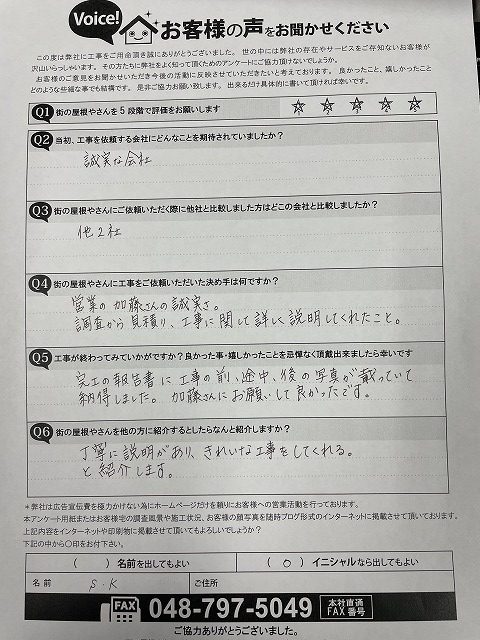 Voice! お客様の声をお聞かせください
この度は弊社に工事をご用命頂き誠にありがとうございました。 世の中には弊社の存在やサービスをご存知ないお客様が
沢山いらっしゃいます。その方たちに弊社をよく知って頂くためのアンケートにご協力頂けないでしょうか。
お客様のご意見をお聞かせいただき今後の活動に反映させていただきたいと考えております。 良かったこと、嬉しかったこと
どのような些細な事でも結構です。 是非ご協力お願い致します。 出来るだけ具体的に書いて頂ければ幸いです。
Q1 街の屋根やさんを5段階で評価をお願いします ☆ ☆ ☆ ☆ ☆
Q2 当初、工事を依頼する会社にどんなことを期待されていましたか?
誠実な会社
Q3 街の屋根やさんにご依頼いただく際に他社と比較しました方はどこの会社と比較しましたか?
他2社
Q4 街の屋根やさんに工事をご依頼いただいた決め手は何ですか?
営業の加藤さんの誠実さ。
調査から見積り、工事に関して詳しく説明してくれたこと。
Q5 工事が終わってみていかがですか?良かった事・嬉しかったことを忌憚なく頂戴出来ましたら幸いです
完工の報告書に工事の前、途中、後の写真が載っていて
納得しました。加藤さんにお願いして良かったです。
Q6 街の屋根やさんを他の方に紹介するとしたらなんと紹介しますか?
丁寧に説明があり、きれいな工事をしてくれる。
と紹介します。
*弊社は広告宣伝費を極力かけない為にホームページだけを頼りにお客様への営業活動を行っております。
本アンケート用紙またはお客様宅の調査風景や施工状況、お客様の顔写真を随時ブログ形式のインターネットに掲載させて頂いております。
上記内容をインターネットや印刷物に掲載させて頂いてもよろしいでしょうか?
下記の中から〇印をお付下さい。
( ) 名前を出してもよい ( ○ ) イニシャルなら出してもよい
名前 S.K ご住所
FAX 048-797-5049 本社直通 FAX番号
ご協力ありがとうございました。